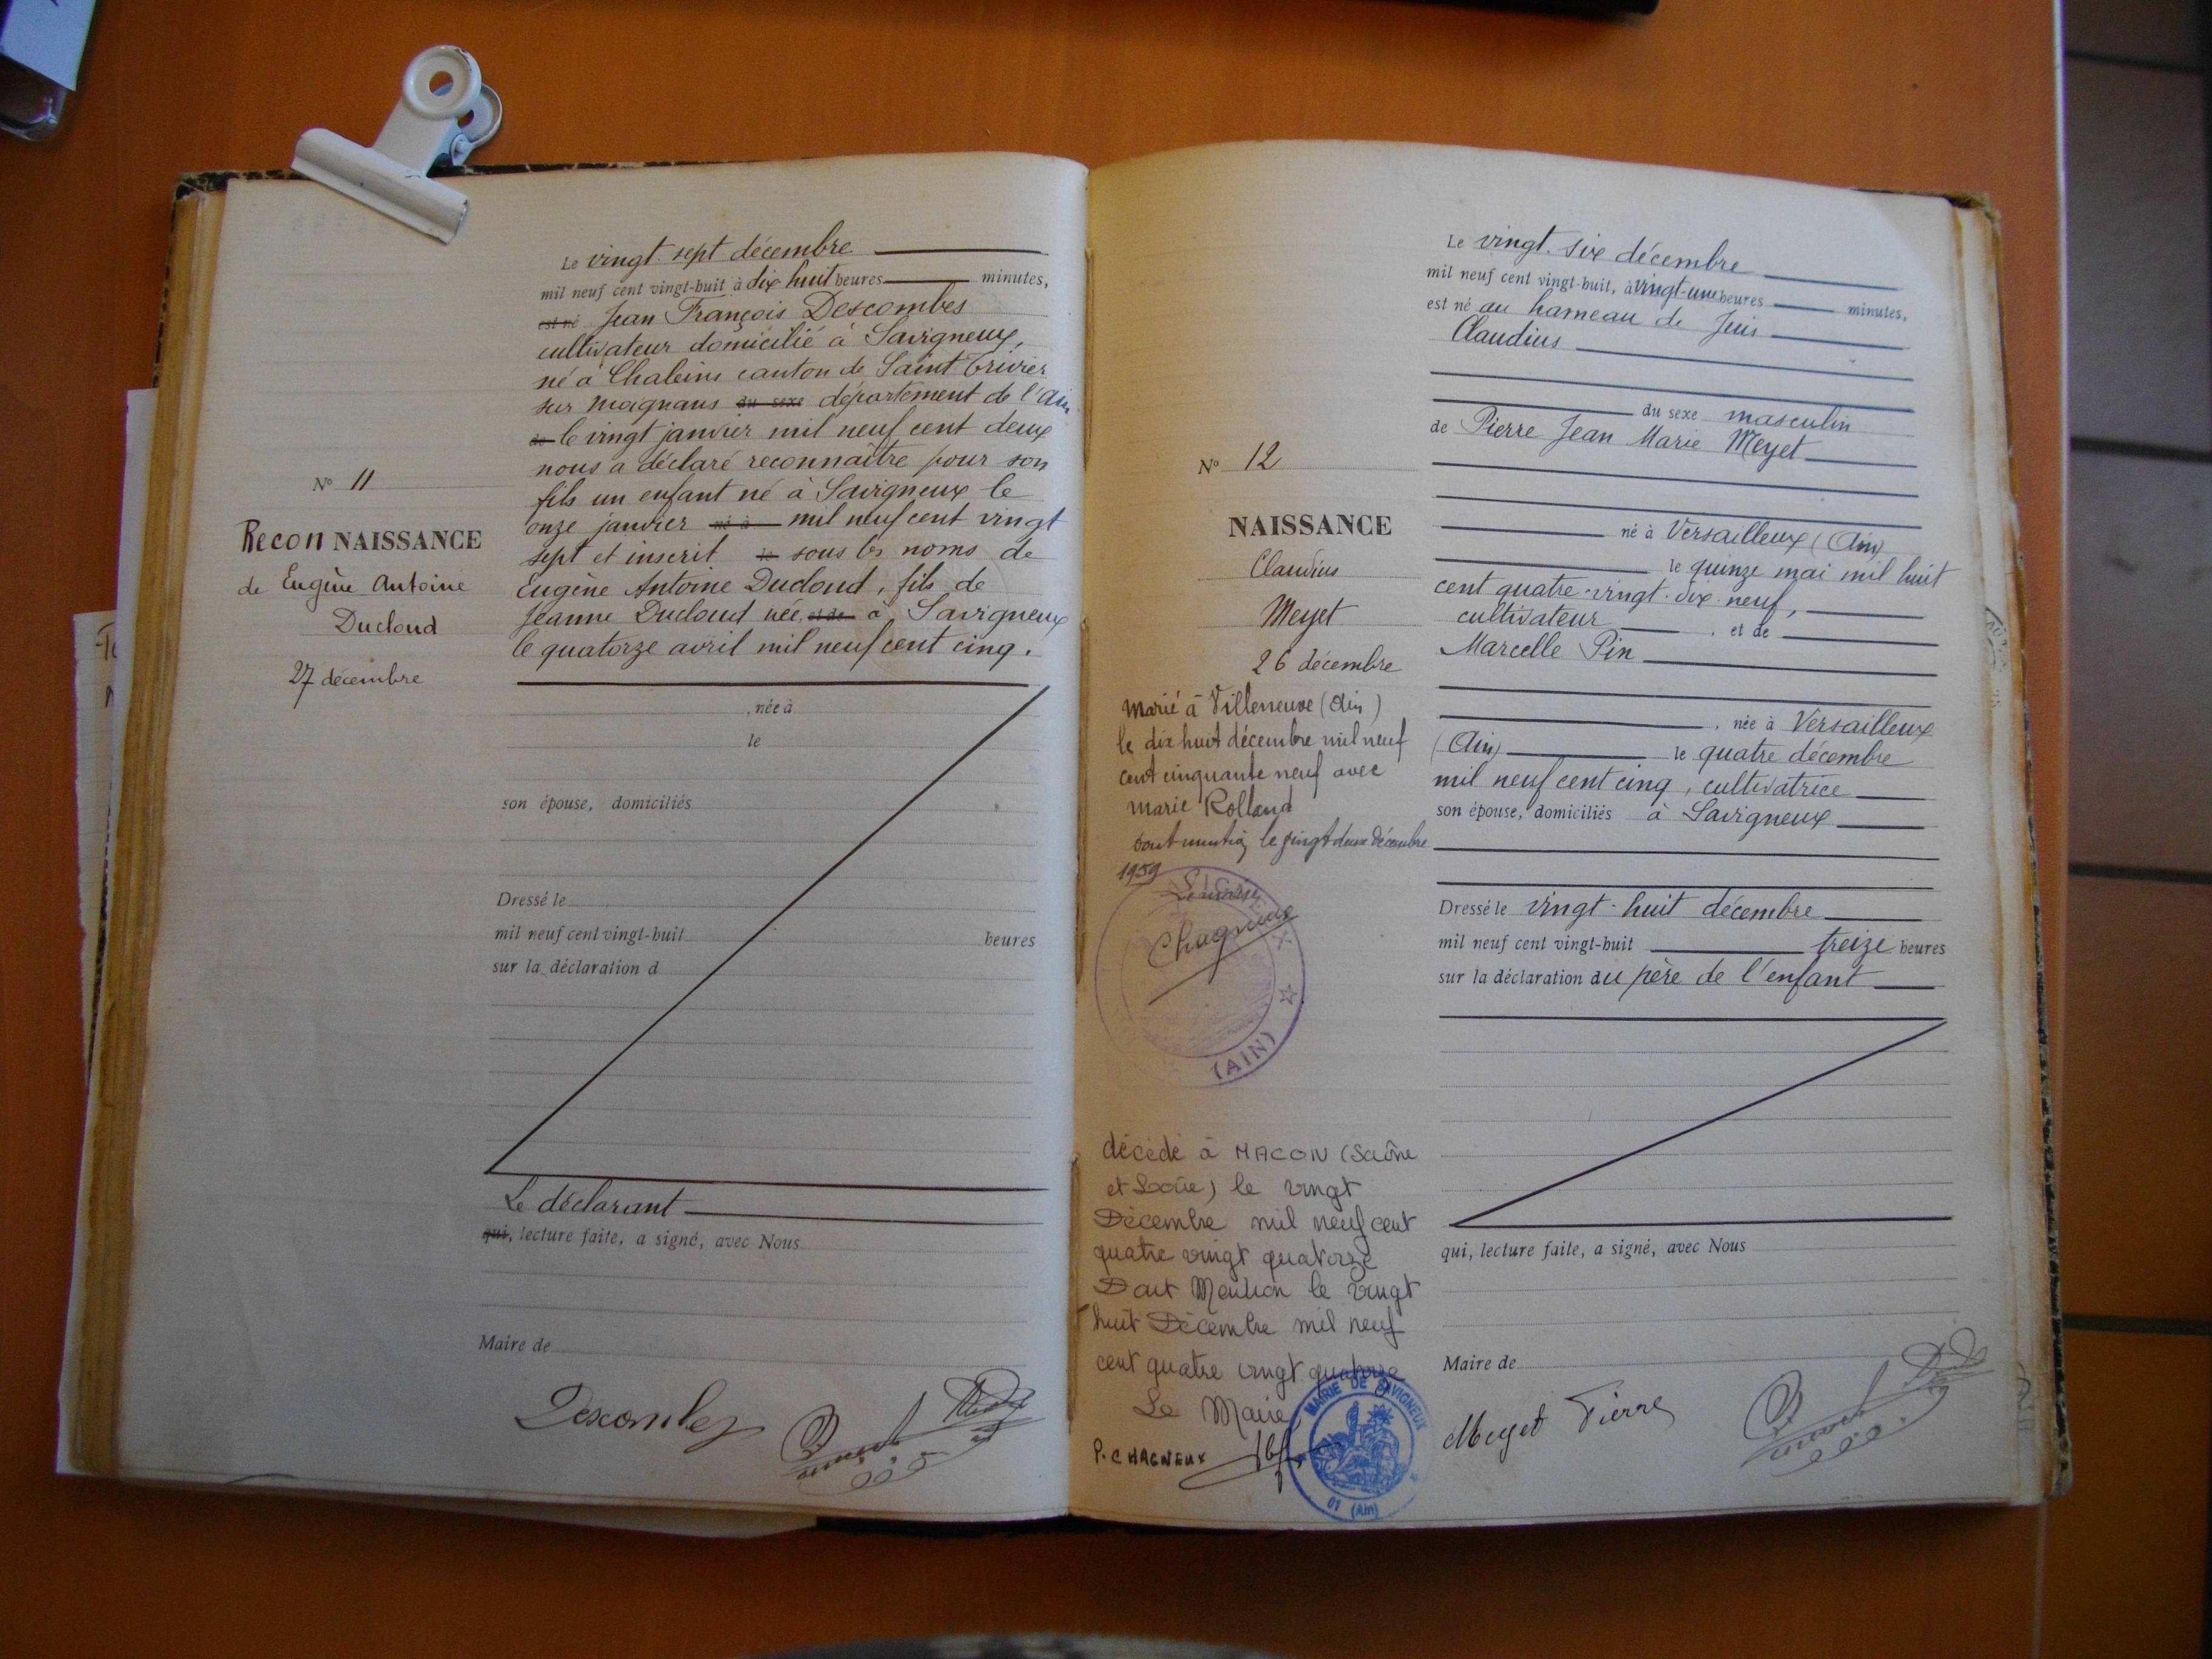 N° 11
Recon NAISSANCE
de Eugène Antoine
Ducloud
27 décembre
Le vingt-sept décembre
mil neuf cent vingt-huit à dix huit heures minutes,
est né Jean François Descombes
cultivateur domicilié à Savigneux,
né à Chaleins canton de Saint Trivier
sur Moignans du sexe département de l'Ain
de le vingt janvier mil neuf cent deux
nous a déclaré reconnaître pour son
fils un enfant né à Savigneux le
onze janvier né à mil neuf cent vingt
sept et inscrit le sous les noms de
Eugène Antoine Ducloud, fils de
Jeanne Ducloud née et de à Savigneux
le quatorze avril mil neuf cent cinq.
, née à
le
son épouse, domiciliés
Dressé le
mil neuf cent vingt-huit heures
sur la déclaration d
Le déclarant
qui, lecture faite, a signé, avec Nous
Maire de
Descombes
N° 12
NAISSANCE
Claudius
Meyet
26 décembre
marié à Villeneuve (Ain)
le dix huit décembre mil neuf
cent cinquante neuf avec
marie Rolland
dont mention le vingt deux décembre
1959
Le maire
Chagneux
(AIN)
décédé à MACON (Saône
et Loire) le vingt
Décembre mil neuf cent
quatre vingt quatorze
Dont Mention le vingt
huit Décembre mil neuf
cent quatre vingt quatorze
Le Maire
P. CHAGNEUX
MAIRIE DE SAVIGNEUX
01 (Ain)
Le vingt-six décembre
mil neuf cent vingt-huit, à vingt-une heures minutes,
est né au hameau de Juis
Claudius
du sexe masculin
de Pierre Jean Marie Meyet
né à Versailleux (Ain)
le quinze mai mil huit
cent quatre-vingt-dix-neuf,
cultivateur , et de
Marcelle Pin
, née à Versailleux
(Ain) le quatre décembre
mil neuf cent cinq, cultivatrice
son épouse, domiciliés à Savigneux
Dressé le vingt-huit décembre
mil neuf cent vingt-huit treize heures
sur la déclaration du père de l'enfant
qui, lecture faite, a signé, avec Nous
Maire de
Meyet Pierre